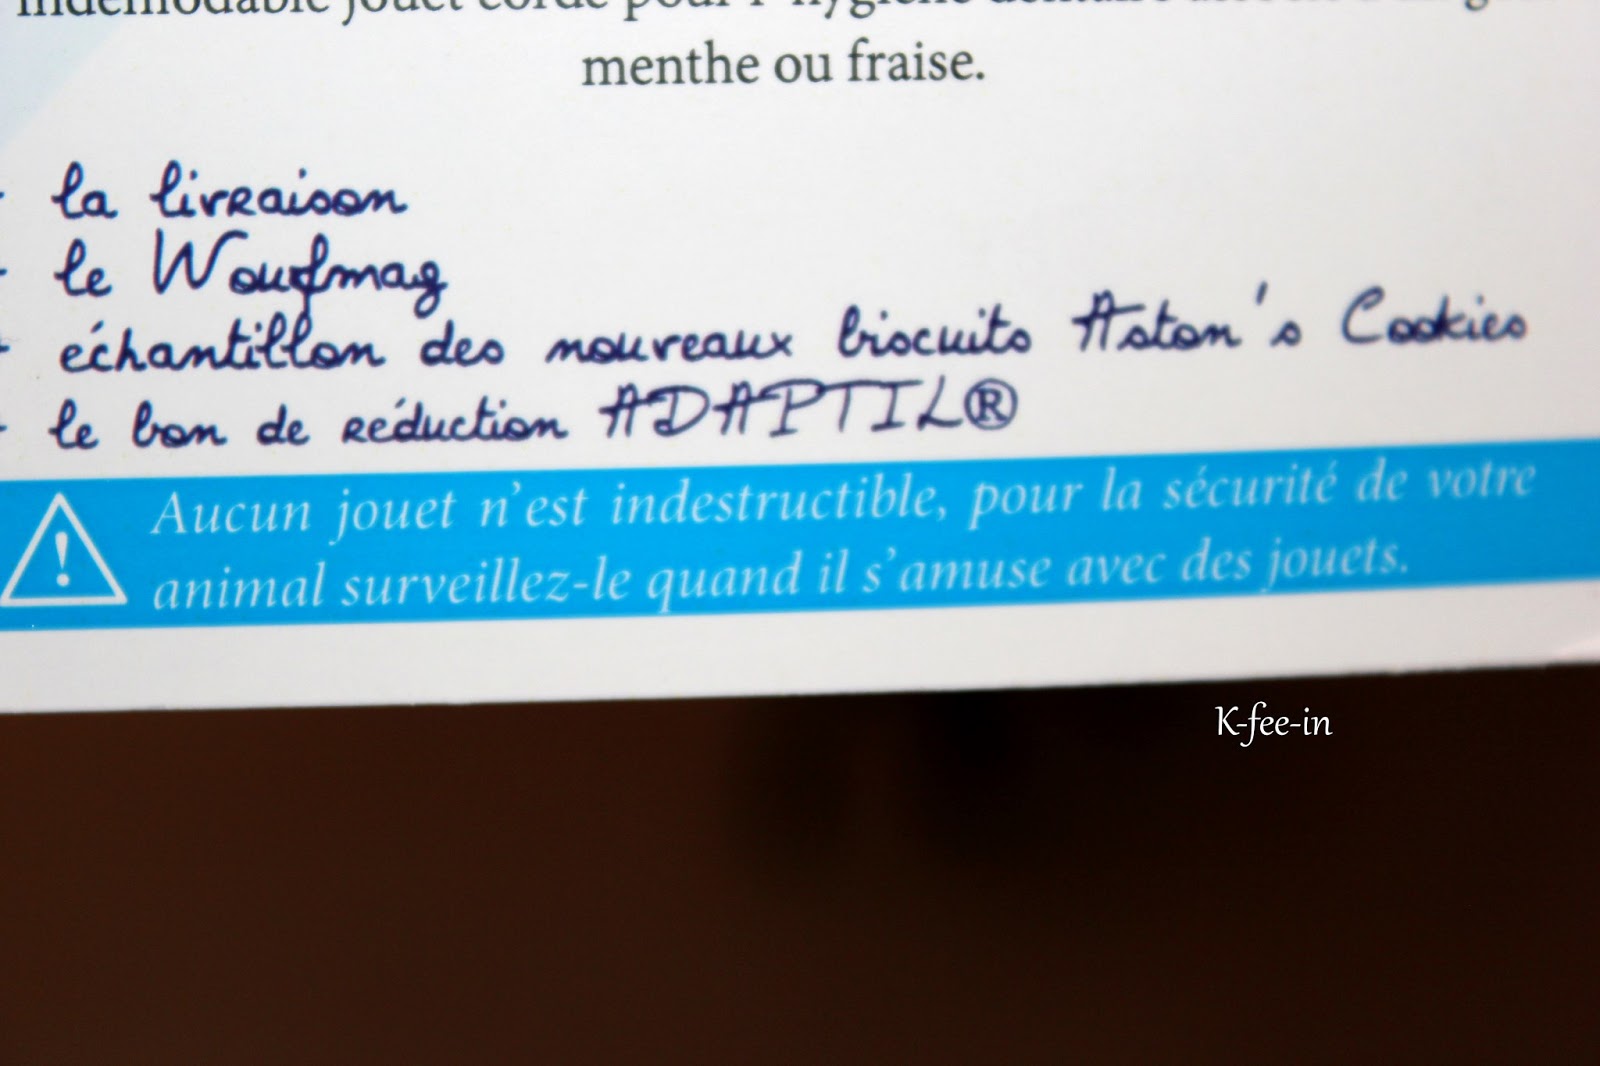 indémodable jouet corde pour l'hygiène dentaire
menthe ou fraise.
la livraison
le Woufmag
échantillon des nouveaux biscuits Aston's Cookies
le bon de réduction ADAPTIL®
Aucun jouet n'est indestructible, pour la sécurité de votre
animal surveillez-le quand il s'amuse avec des jouets.
K-fee-in